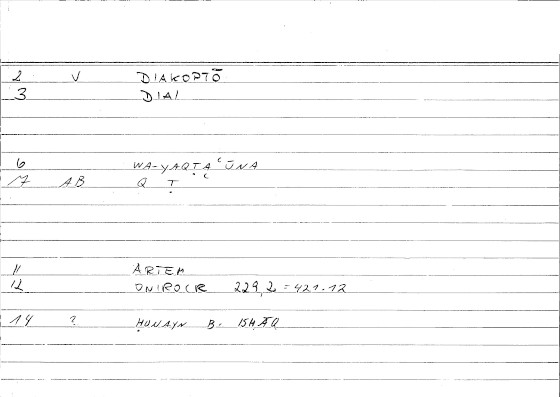 2 V DIAKOPTŌ
3 DIAI
6 WA-YAQṬAʿŪNA
17 AB Q Ṭ ʿ
11 ARTEM
12 ONIROCR 229,2=421.12
14 ? ḤUNAYN B. ISḤĀQ